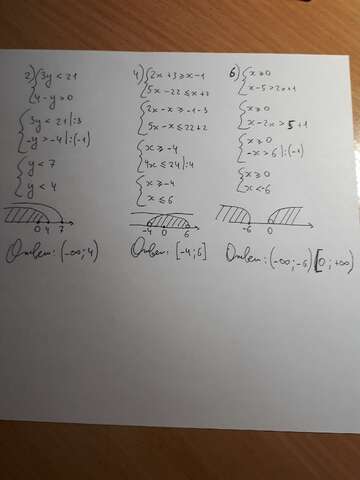 2) { 3y < 21
4 - y > 0
{ 3y < 21 | :3
-y > -4 | :(-1)
{ y < 7
y < 4
0 4 7
Ответ: (-∞; 4)
4) { 2x + 3 ≥ x - 1
5x - 22 ≤ x + 2
{ 2x - x ≥ -1 - 3
5x - x ≤ 22 + 2
{ x ≥ -4
4x ≤ 24 | :4
{ x ≥ -4
x ≤ 6
-4 0 6
Ответ: [-4; 6]
6) { x ≥ 0
x - 5 > 2x + 1
{ x ≥ 0
x - 2x > 5 + 1
{ x ≥ 0
-x > 6 | :(-1)
{ x ≥ 0
x < -6
-6 0
Ответ: (-∞; -6) [0; +∞)